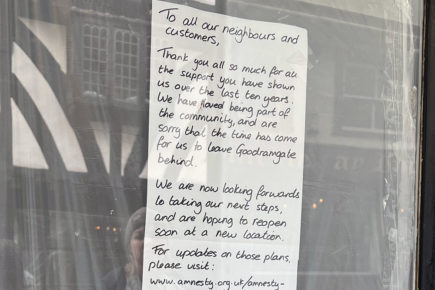 To all our neighbours and
customers,
Thank you all so much for all
the support you have shown
us over the last ten years.
We have loved being part of
the community, and are
sorry that the time has come
for us to leave Goodramgate
behind.
We are now looking forwards
to taking our next steps,
and are hoping to reopen
soon at a new location.
For updates on those plans,
please visit:
www.amnesty.org.uk/amnesty-